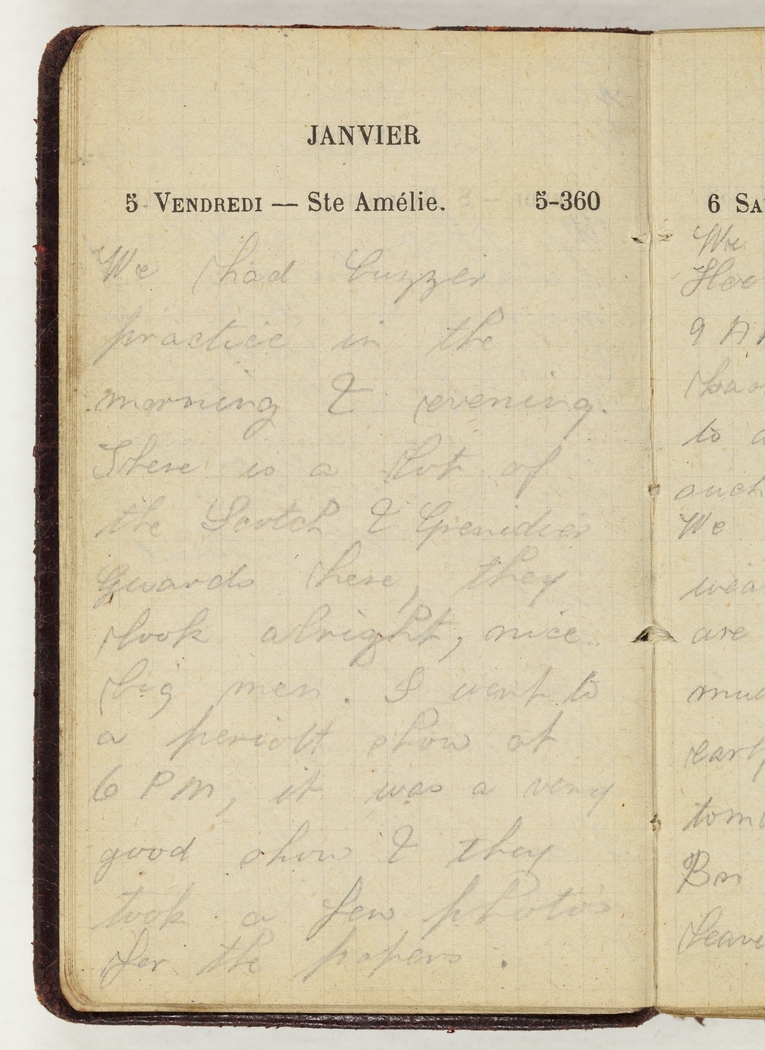 JANVIER
5 VENDREDI — Ste Amélie. 5-360
We had buzzer
practice in the
morning & evening.
There is a lot of
the Scotch & Grenidier
Guards here, they
look alright, nice
big men. I went to
a show at
6 PM, it was a very
good show & they
took a few photo's
for the papers.
6 SA
We
9 A
to a
such
We
wea
are
mu
early
tom
Bn
leave